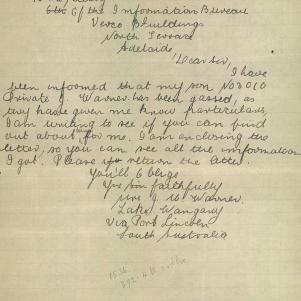 of the Information Bureau
Verco Buildings
North Terrace
Adelaide
Dear Sir,
I have
been informed that my son No 3010
Private J. Warner has been gassed, as
they have given me know particulars,
I am writing to see if you can find
out about him for me. I am enclosing the
letter, so you can see all the information
I got. Please return the letter.
You'll oblige
Yrs faithfully
Mrs J. W. Warner.
Lake Wangary
Via Port Lincoln
South Australia